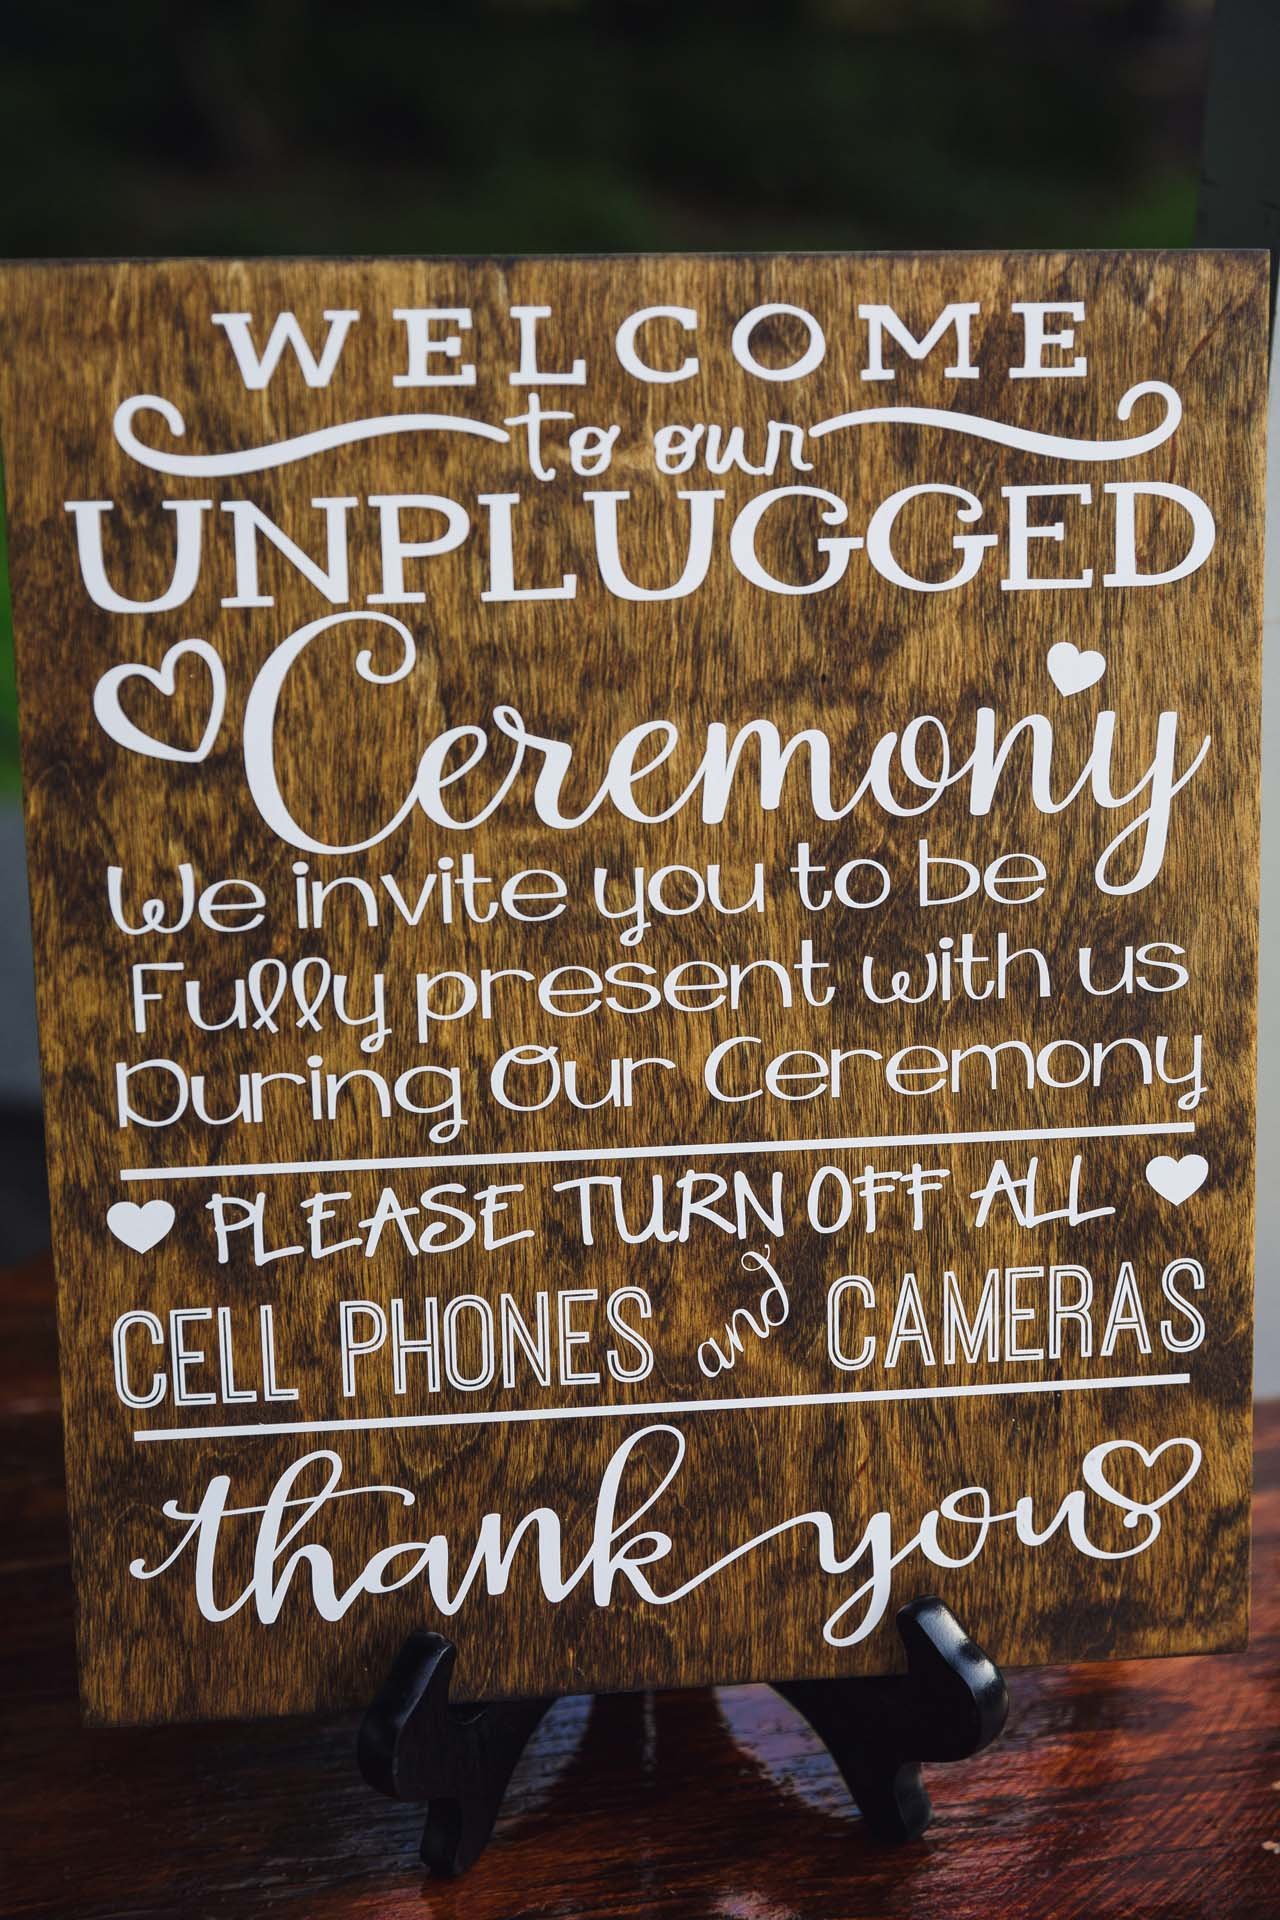 WELCOME
to our
UNPLUGGED
Ceremony
We invite you to be
Fully present with us
During Our Ceremony
PLEASE TURN OFF ALL
CELL PHONES and CAMERAS
thank you